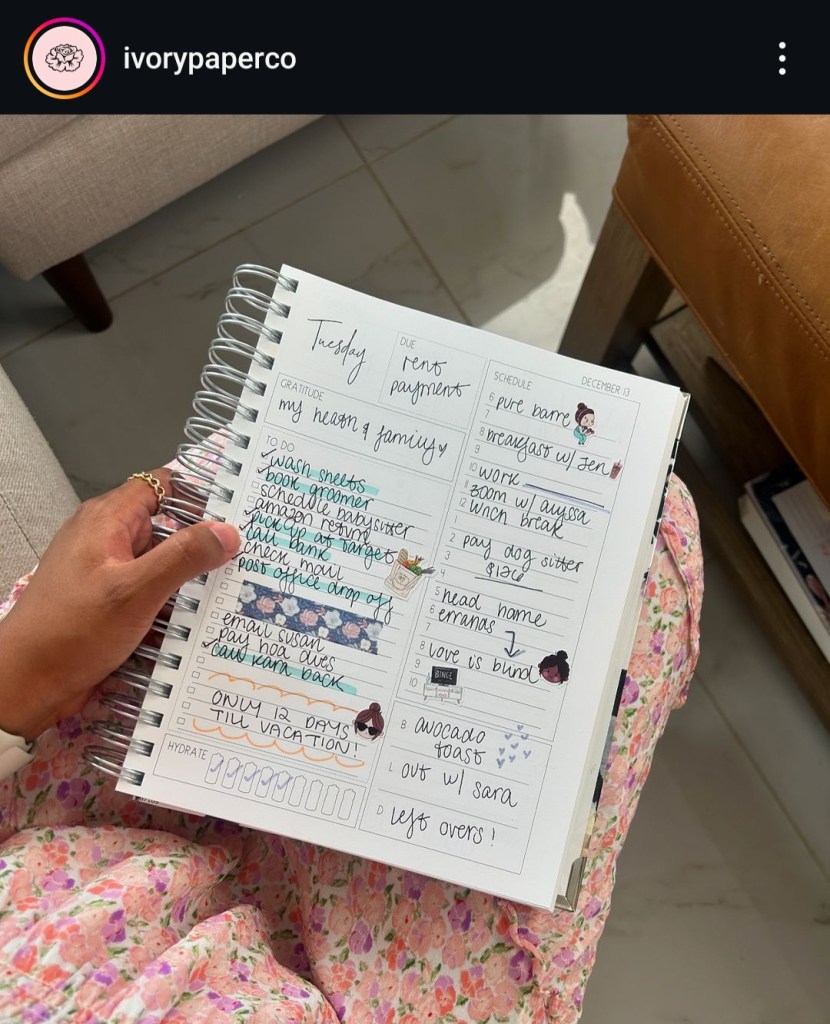 ivorypaperco
Tuesday
DUE
rent
payment
GRATITUDE
my health & family
TO DO
wash sheets
book groomer
schedule babysitter
amazon refund
pick up at Target
call bank
check mail
post office drop off
email susan
pay hoa dues
call kara back
ONLY 12 DAYS
TILL VACATION!
HYDRATE
SCHEDULE
DECEMBER 13
6 pure barre
7
8 breakfast w/ Jen
9
10 work
11 zoom w/ alyssa
12 lunch break
1
2 pay dog sitter
3 $126
4
5 head home
6 errands
7
8 love is blind
9
BINGE
10
B avocado
toast
L out w/ sara
D left overs!